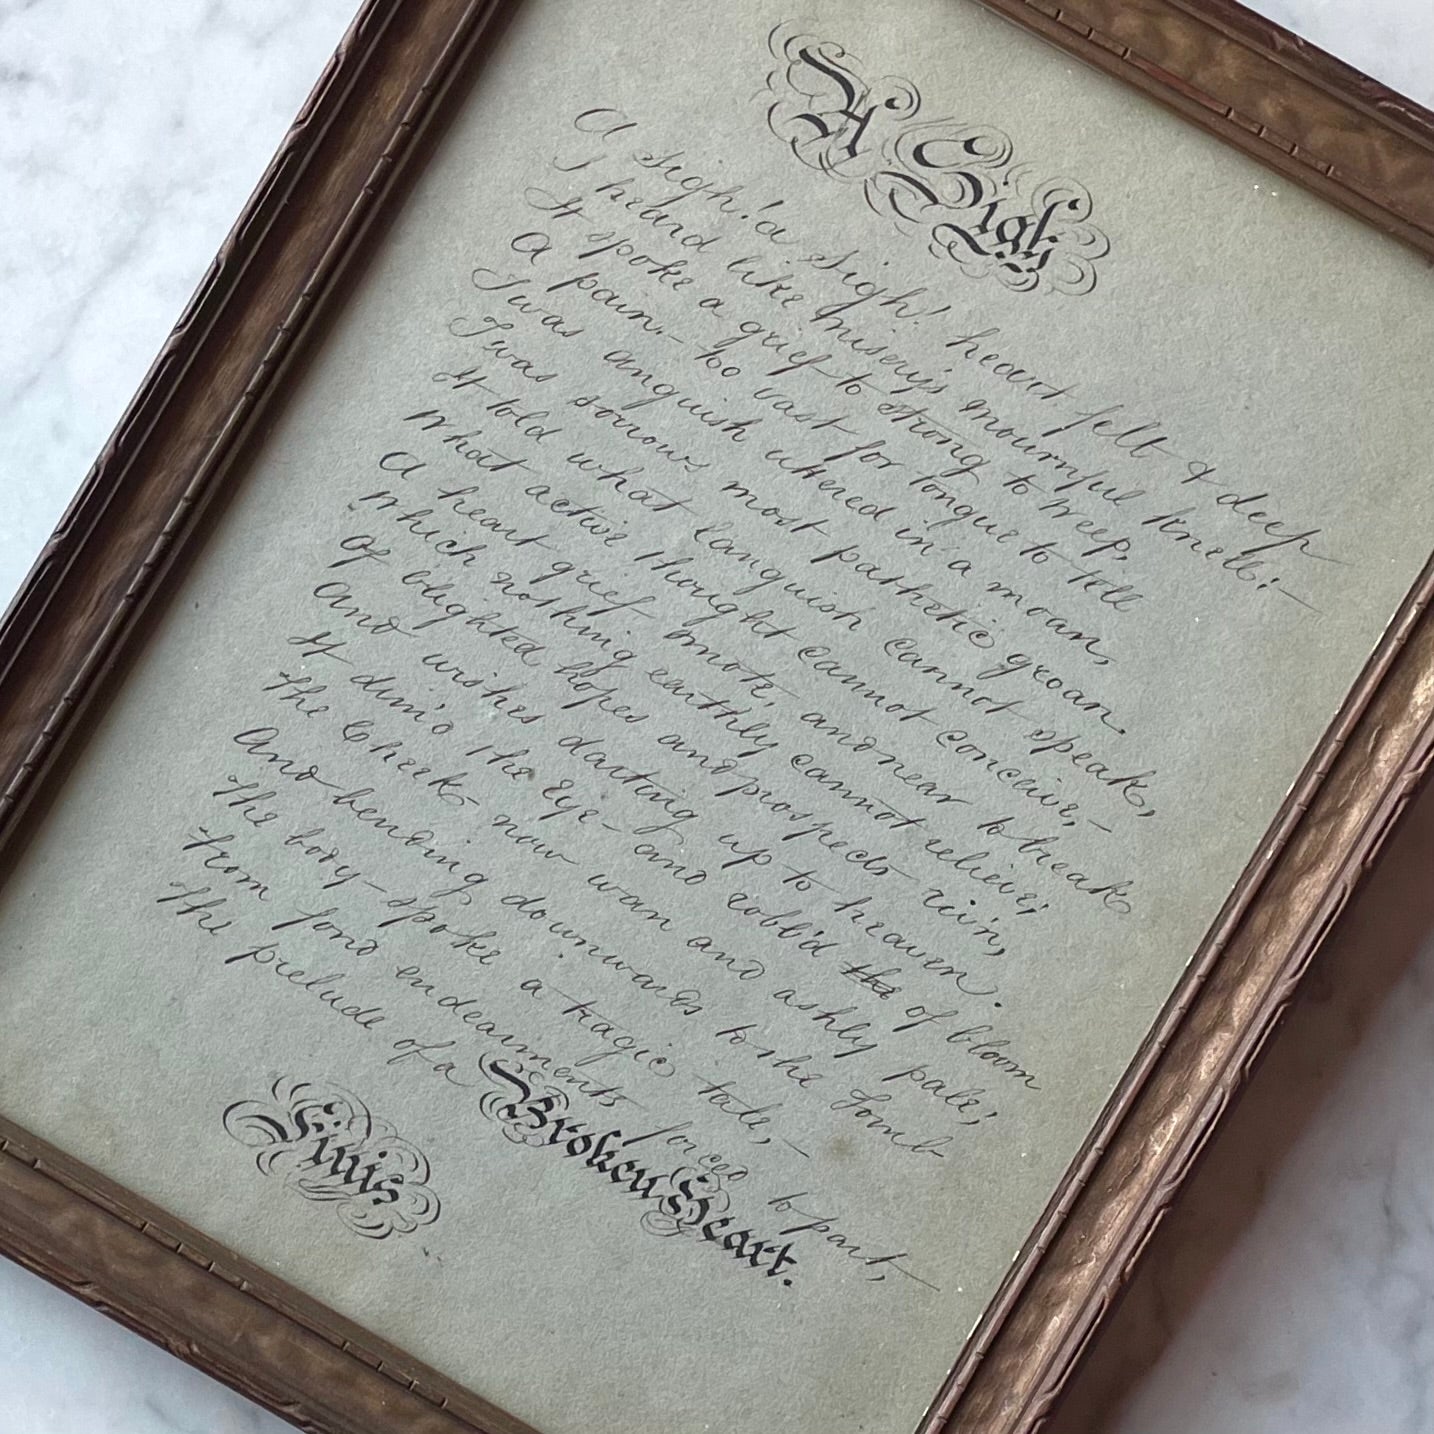 A Sigh.
A sigh! a sigh! heart felt & deep
I heard like misery's mournful knell;—
It spoke a grief to strong to weep,
A pain.— too vast for tongue to tell
Twas anguish uttered in a moan,
Twas sorrows most pathetic groan.
It told what languish cannot speak,
What active thought cannot conceive,—
A heart grief smote, and near to break
Which nothing earthly cannot relieve;
Of blighted hopes and prospects riv'n,
And wishes darting up to heaven.
It dim'd the Eye— and robb'd the of bloom
The Cheek— now wan and ashly pale;
And bending downwards to the Tomb
The body— spoke a tragic tale,—
From fond endearments forced to part,
The prelude of a Broken Heart.
Finis